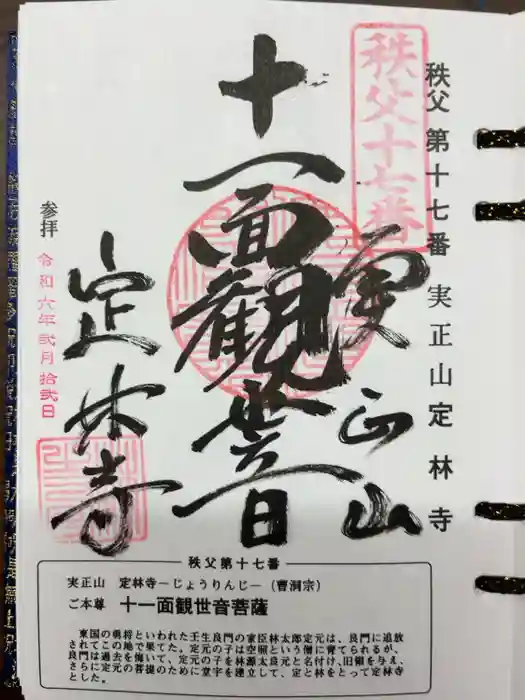 秩父第十七番 実正山定林寺
秩父十七番
実正山
十一面観世音
定林寺
参拝
令和六年弐月拾弐日
秩父第十七番
実正山 定林寺―じょうりんじ―(曹洞宗)
ご本尊 十一面観世音菩薩
東国の勇将といわれた壬生良門の家臣林太郎定元は、良門に追放
されてこの地で果てた。定元の子は空照という僧に育てられるが、
良門は過去を悔いて、定元の子を林源太良元と名付け、旧領を与え、
さらに定元の菩提のために堂宇を建立して、定と林をとって定林寺
とした。